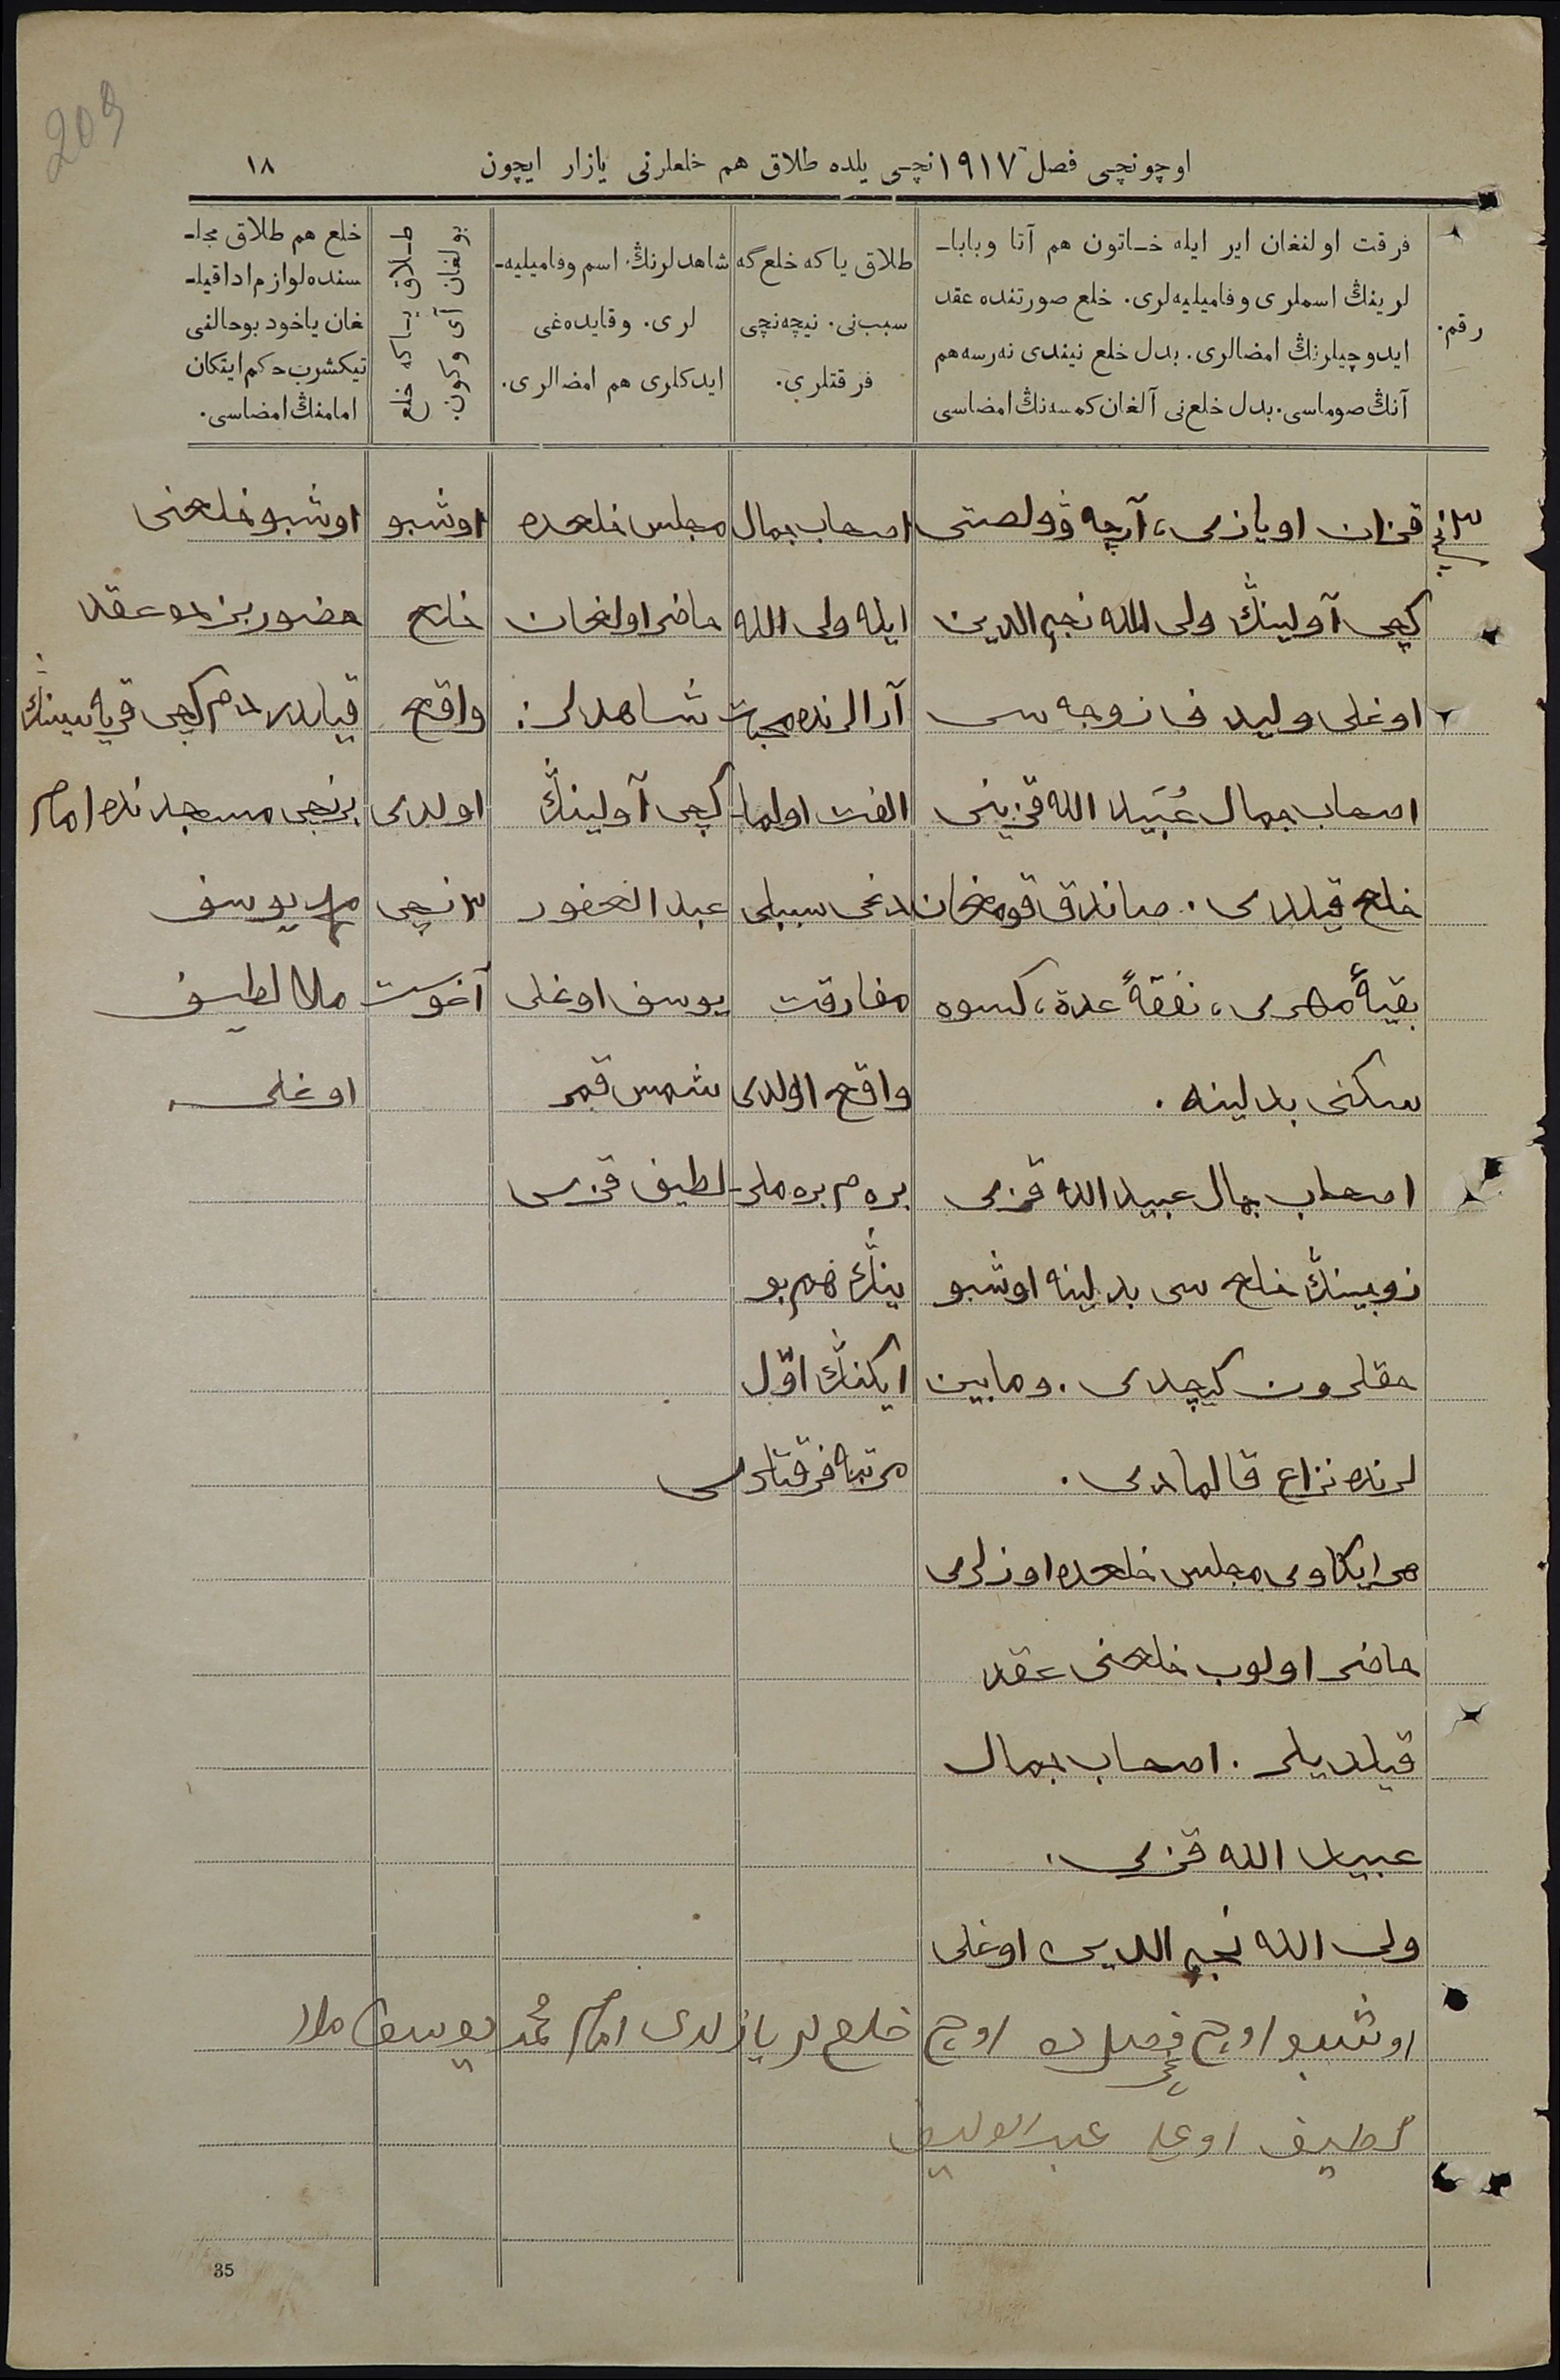 209
اوچونچی فصل ١٩١٧ نچی یلده طلاق هم خلعلرنی یازار ایچون
١٨
رقم.
فرقت اولنغان ایر ایله خاتون هم آتا وبابا-
لرینڭ اسملری وفامیلیه‌لری. خلع صورتنده عقد
ایدوچیلرنڭ امضالری. بدل خلع نیندی نه‌رسه هم
آنڭ صوماسی. بدل خلع‌نی آلغان کمسه‌نڭ امضاسی
طلاق یا که خلع گه
سبب نی. نیچه‌نچی
فرقتلری.
شاهدلرنڭ اسم وفامیلیه-
لری. وقایده‌غی
ایدکلری هم امضالری.
طلاق یا که خلع
بولغان آی وکون.
خلع هم طلاق مجلـ-
سنده لوازم ادا قیلـ-
غان یاخود بو حالنی
تیکشرب حکم ایتکان
امامنڭ امضاسی.
٣نچی
قزان اویازی، آرچه ۋولصتی
کچی آولینڭ ولی الله نجم الدین
اوغلی ولید ف زوجه سی
اصحاب جمال عُبَید الله قزینی
خلع قیلدی. صاندق قومغان
بقیهٔ مهری، نفقهٔ عدة، کسوه
سکنی بدلینه.
اصحاب جمال عبید الله قزی
زوجینڭ خلع سی بدلینه اوشبو
حقلردن کیچدی. ومابین
لرنده نزاع قالمادی.
هر ایکاوی مجلس خلعده اوزلری
حاضر اولوب خلعنی عقد
قیلدیلر. اصحاب جمال
عبید الله قزی.
ولی الله نجم الدین اوغلی
اصحاب جمال
ایله ولی الله
آرالرنده محبت
الفت اولما-
دغی سببلی
مفارقت
واقع اولدی
بینڭ هم بو
ایکنڭ اوّل
مرتبه فرقتلری
مجلس خلعده
حاضر اولغان
شاهدلر:
کچی آولینڭ
عبد الغفور
یوسف اوغلی
شمس قمر
لطیف قزی
اوشبو
خلع
واقع
اولدی
٣نچی
آغوست
اوشبو خلعنی
حضوربزده عقد
قیلدیلر کچی قریه سینڭ
برنچی مسجدنده امام
محمد یوسف
ملا لطیف
اوغلی
اوشبو اوچنچی فصلده اوچ خلع لر یازلدی امام محمد یوسف ملا
لطیف اوغلی
35